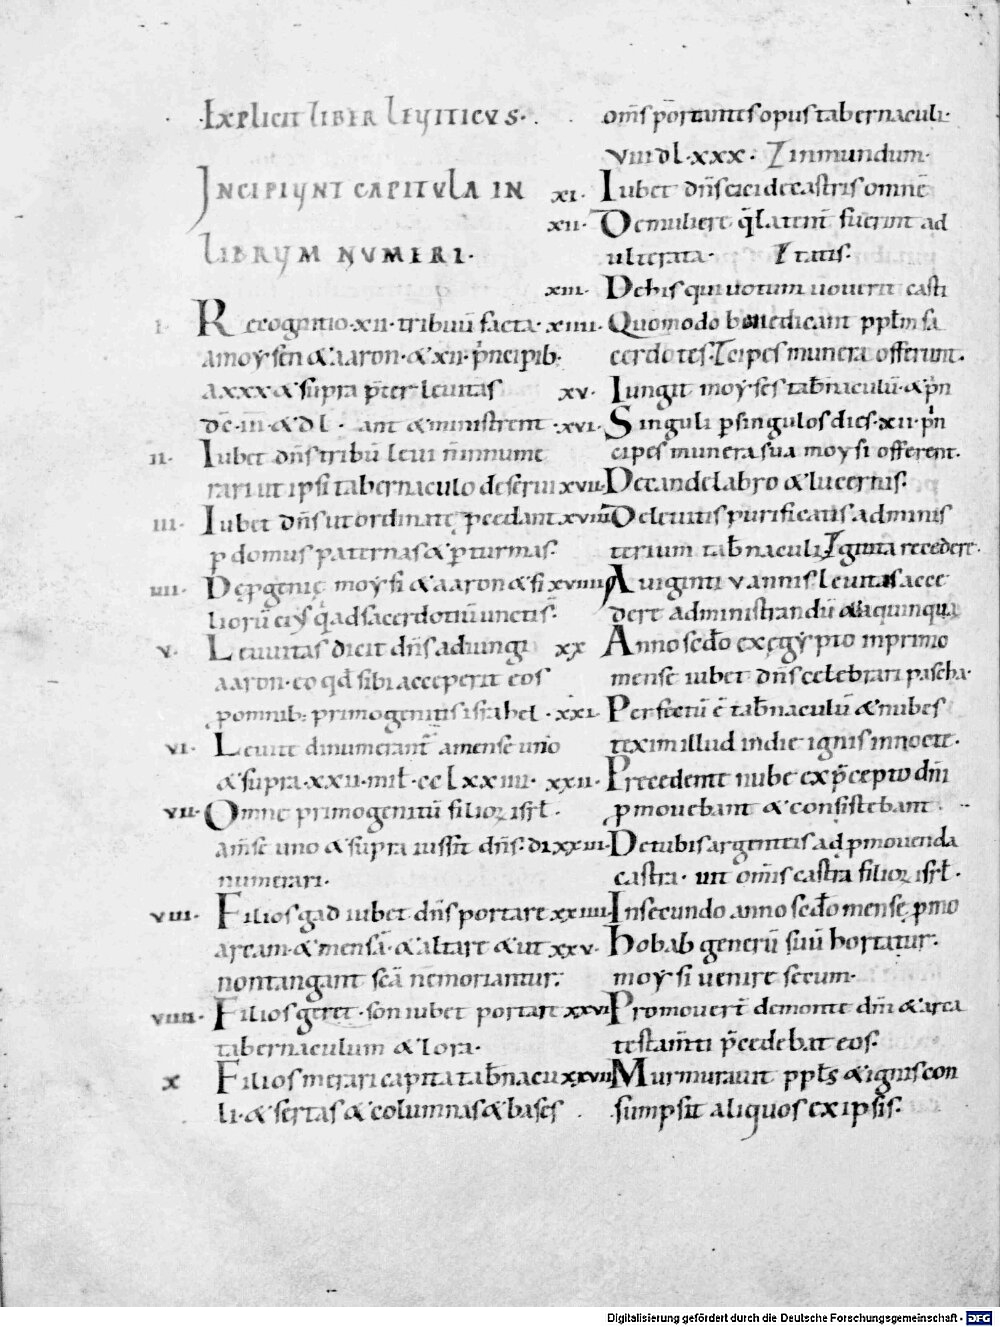 .Explicit liber leviticus.
Incipiunt capitula in
librum numeri.
I. Recognitio .xii. tribuū facta
a moysen & aaron. & xii. p̄ncipib;
a xxx & supra p̄ter leuitas
dc̄. iii. & dl. ant & ministrent
II. Iubet dn̄s tribū leui n̄ innume
rari ut ipsi tabernaculo deserui
III. Iubet dn̄s ut ordinate p̄cedant
ꝑ domus paternas & ꝑ turmas.
IIII. De ꝓgenie moysi & aaron & fi
liorū eiꝰ qd̄ ad sacerdotiū unctis.
V. Leuuitas dicit dn̄s adiungi
aaron. eo qd̄ sibi acceperit eos
ꝓ omnib; primogenitis isrl̄ahel.
VI. Leuite dinumerant̄ a mense uno
& supra .xxii. mil̄. cclxxiiii.
VII. Omne primogenitū filioꝝ isrl̄.
a m̄se uno & supra iussit dn̄s.
numerari.
VIII. Filios gad iubet dn̄s portare
arcam. & mensā. & altare & ut
non tangant sc̄a ne moriantur.
VIIII. Filios geret.son iubet portare
tabernaculum & lora.
X Filios merari capita tab̄nacu
li. & sertas & columnas & bases
om̄s portantes opus tabernaculi.
viiidl.xxx. / inmundum.
XI. Iubet dn̄s eici de castris omnē
XII. De muliere q̄ latent̄ fuerint ad
ulterata. / tatis.
XIII. De his qui uotum uouerit casti
XIIII. Quomodo benedicant pplm̄ sa
cerdotes. / cipes munera offerunt.
XV. Iungit moyses tab̄naculū. & p̄n
XVI. Singuli ꝑ singulos dies .xii. p̄n
cipes munera sua moysi offerent.
XVII. De candelabro & lucernis.
XVIII. De leuitis purificatis ad minis
terium tab̄naculi / ginta recedere.
XVIIII. A uiginti v annis leuitas acce
dere ad ministrandū & a quinqua
XX Anno scd̄o ex ęgypto in primo
mense iubet dn̄s celebrari pascha.
XXI. Perfectū ē tab̄naculū & nubes
texim illud in die ignis in nocte.
XXII. Precedente nube ex p̄cepto dn̄i
ꝓmouebant & consistebant.
XXIII. De tubis argenteis ad ꝓmouenda
castra. ut om̄is castra filioꝝ isrl̄.
XXIIII. In secundo anno scd̄o mense ꝓmo
XXV. Hobab generū suū hortatur.
moysi uenire secum.
XXVI Promouert̄ de monte dn̄i & arca
testam̄ti p̄cedebat eos.
XXVII Murmurauit ppl̄s & ignis con
sumpsit aliquos ex ipsis.
Digitalisierung gefördert durch die Deutsche Forschungsgemeinschaft - DFG